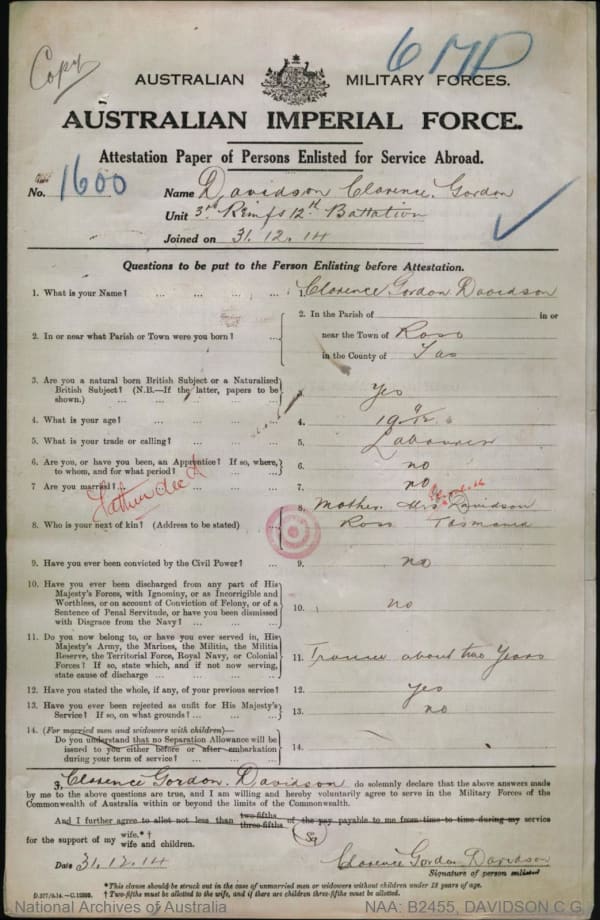 Copy
6 MD
AUSTRALIAN MILITARY FORCES.
AUSTRALIAN IMPERIAL FORCE.
Attestation Paper of Persons Enlisted for Service Abroad.
No. 1600
Name Davidson Clarence Gordon
Unit 3rd Reinfs 12th Battalion
Joined on 31.12.14
Questions to be put to the Person Enlisting before Attestation.
1. What is your Name? ... ... ... ... 1. Clarence Gordon Davidson
2. In or near what Parish or Town were you born? ... 2. In the Parish of in or
near the Town of Ross
in the County of Tas
3. Are you a natural born British Subject or a Naturalized
British Subject? (N.B.—If the latter, papers to be
shown.) ... ... ... ... ... 3. Yes
4. What is your age? ... ... ... ... 4. 19
5. What is your trade or calling? ... ... ... 5. Labourer
6. Are you, or have you been, an Apprentice? If so, where,
to whom, and for what period? ... ... ... 6. no
7. Are you married?... ... ... ... 7. no
Father dec'd
8. Who is your next of kin? (Address to be stated) 8. Mother. Mrs Davidson
Ross Tasmania
9. Have you ever been convicted by the Civil Power? ... 9. no
10. Have you ever been discharged from any part of His
Majesty's Forces, with Ignominy, or as Incorrigible and
Worthless, or on account of Conviction of Felony, or of a
Sentence of Penal Servitude, or have you been dismissed
with Disgrace from the Navy? ... ... ... 10. no
11. Do you now belong to, or have you ever served in, His
Majesty's Army, the Marines, the Militia, the Militia
Reserve, the Territorial Force, Royal Navy, or Colonial
Forces? If so, state which, and if not now serving,
state cause of discharge ... ... ... ... 11. Trainee about two Years
12. Have you stated the whole, if any, of your previous service? 12. Yes
13. Have you ever been rejected as unfit for His Majesty's
Service? If so, on what grounds? ... ... ... 13. no
14. (For married men and widowers with children)—
Do you understand that no Separation Allowance will be
issued to you either before or after embarkation
during your term of service? ... ... ... 14.
I, Clarence Gordon Davidson do solemnly declare that the above answers made
by me to the above questions are true, and I am willing and hereby voluntarily agree to serve in the Military Forces of the
Commonwealth of Australia within or beyond the limits of the Commonwealth.
And I further agree to allot not less than two-fifths three-fifths of the pay payable to me from time to time during my service
for the support of my wife.*†
wife and children.
Date 31.12.14
Clarence Gordon Davidson
Signature of person enlisted
*This clause should be struck out in the case of unmarried men or widowers without children under 18 years of age.
† Two-fifths must be allotted to the wife, and if there are children three-fifths must be allotted.
National Archives of Australia
NAA: B2455, DAVIDSON C G